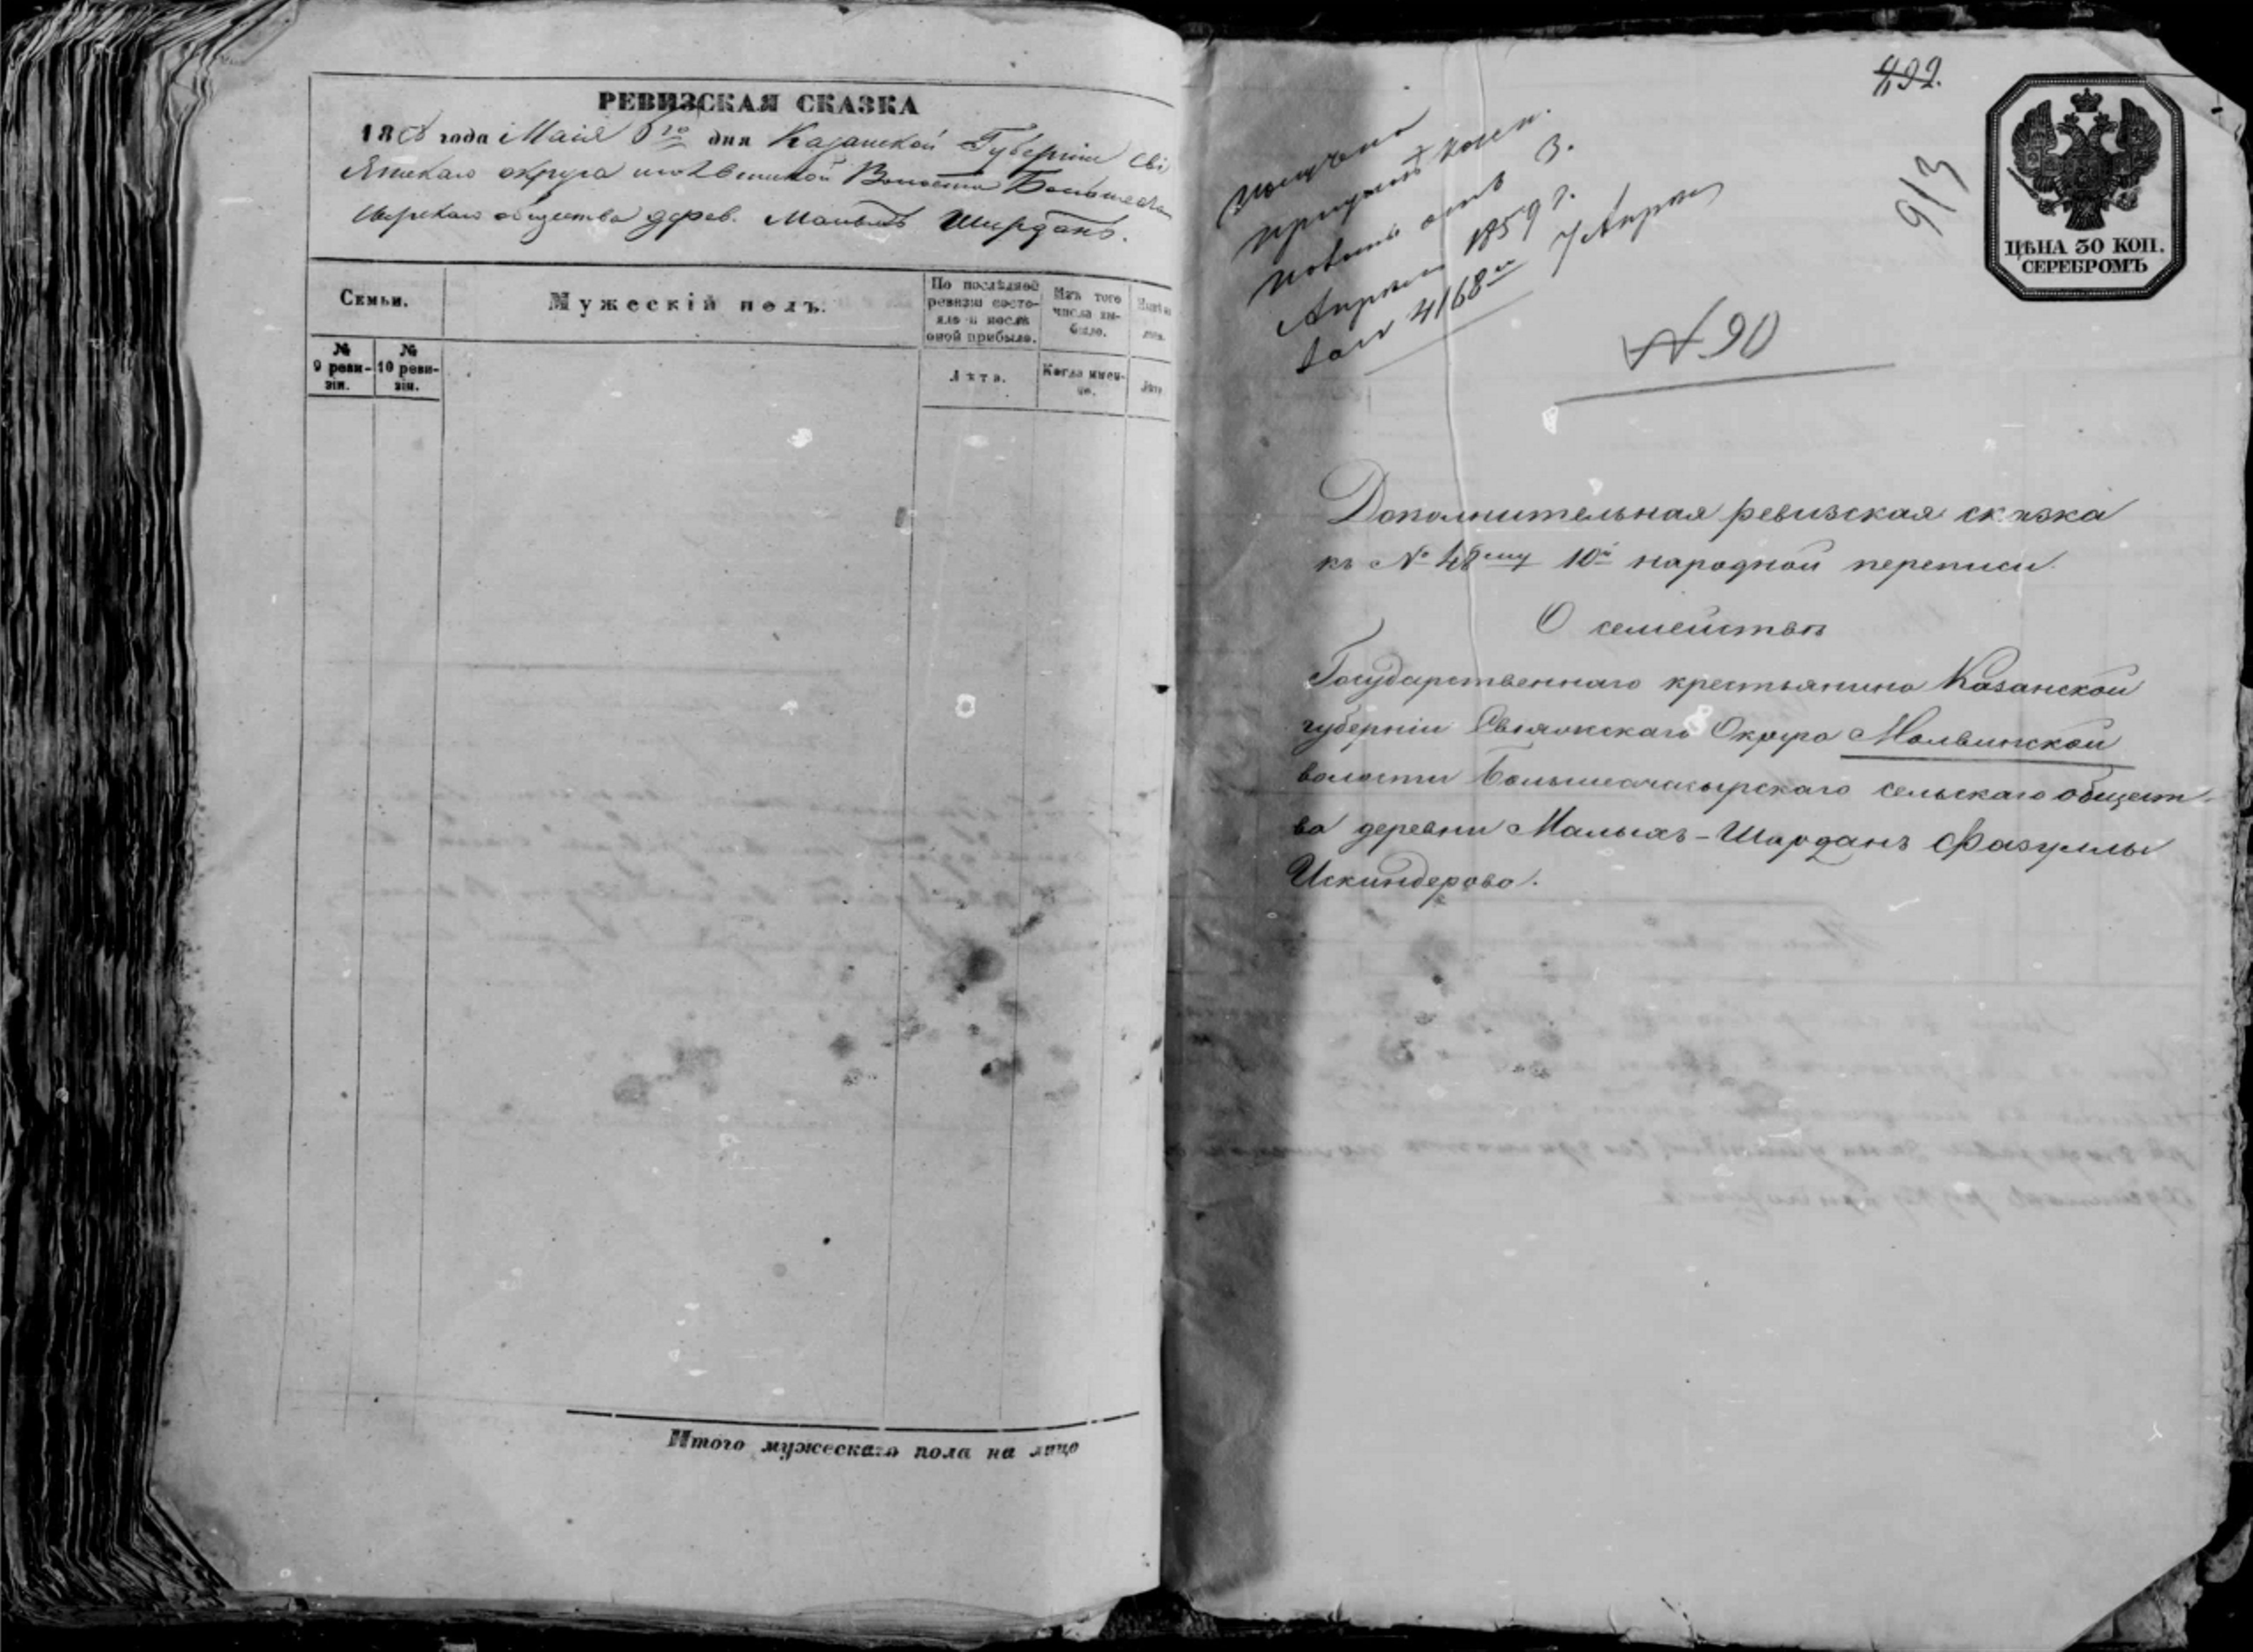 РЕВИЗСКАЯ СКАЗКА
185 года Маія дня Казанской Губерніи Сві
яжскаго округа Волости Большеача
сырскаго общества дерев. Малыхъ Ширданъ.
Семьи.
Мужескій полъ.
По послѣдней
ревизіи состо-
яло и послѣ
оной прибыло.
Изъ того
числа вы-
было.
№
9 реви-
зіи.
№
10 реви-
зіи.
Лѣта.
Когда имен-
но.
Лѣта
Итого мужескаго пола на лицо
492.
913
ЦѢНА 30 КОП.
СЕРЕБРОМЪ
отъ 3.
Апрѣля 1859 г.
4168 7 Апрѣля
№ 90
Дополнительная ревизская сказка
къ № 48му 10й народной переписи.
О семействѣ
Государственнаго крестьянина Казанской
губерніи Свіяжскаго Округа Молвинской
волости Большеачасырскаго сельскаго общест-
ва деревни Малыхъ-Шырданъ Фазуллы
Искиндерова.